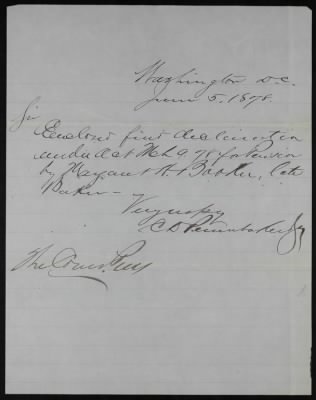 Washington D.C.
June 5, 1878.
Sir
Enclosed find declaration
under Act Mch 9, 78 for Pension
by Margaret A. Booker, late
Baker —
Very respy
C D Pennebaker
The Com. Pens